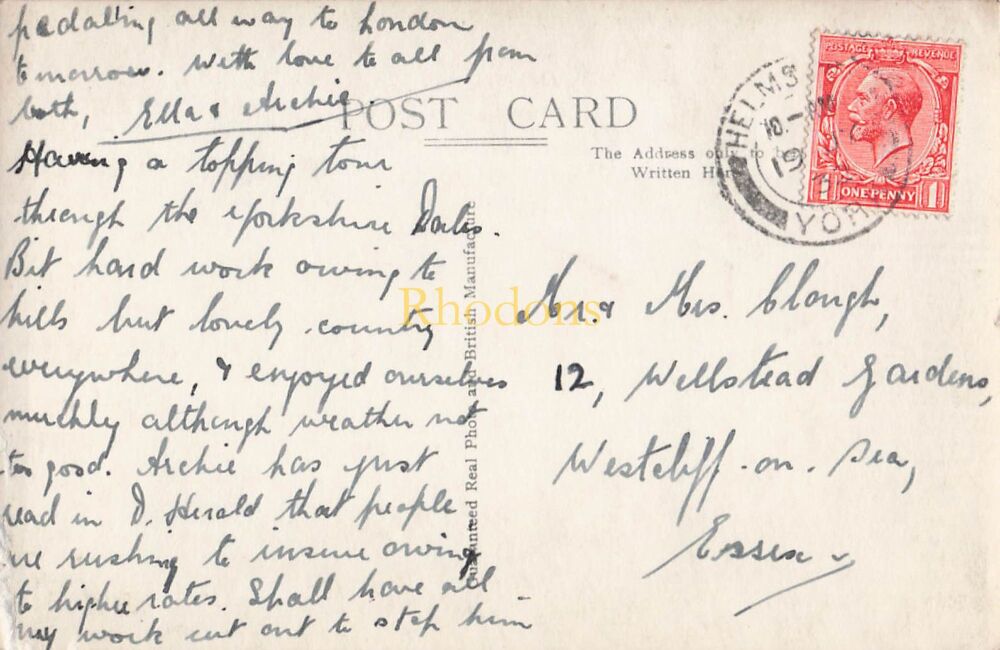 pedalling all way to London
tomorrow. With love to all from
both, Ella & Archie.
POST CARD
The Address only to
Written Here
Having a topping tour
through the Yorkshire Dales.
Bit hard work owing to
hills but lovely country
everywhere, & enjoyed ourselves
muchly although weather not
too good. Archie has just
read in D. Herald that people
are rushing to insure owing
to higher rates. Shall have all
my work cut out to stop him
Guaranteed Real Photo and British Manufacture
Rhodons
Mr. & Mrs. Clough,
12, Wellstead Gardens,
Westcliff-on-Sea,
Essex
HELMS
YOR
POSTAGE REVENUE
1 ONE·PENNY 1